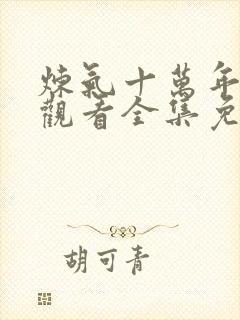 煉氣十萬年
觀看全集免
胡可青